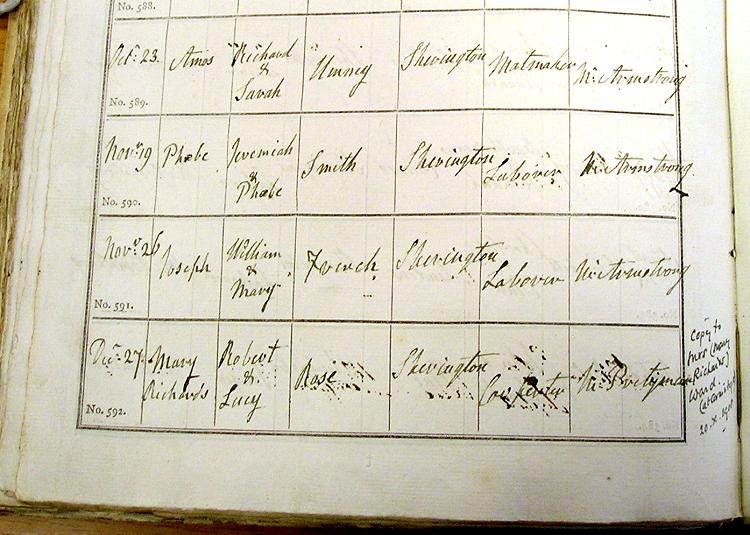 No. 588.
Oct.r 23. Amos Richard & Sarah Shevington Matmaker Mr. Armstrong
No. 589.
Nov.r 19 Phœbe Jeremiah & Phœbe Smith Shevington Laborer Mr. Armstrong
No. 590.
Nov.r 26 Joseph William & Mary French Shevington Laborer Mr. Armstrong
No. 591.
Dec.r 27 Mary Richards Robert & Lucy Rose Shevington Carpenter Mr. Pretyman
No. 592.
Copy to
Mrs (Mary
Richards)
Ward